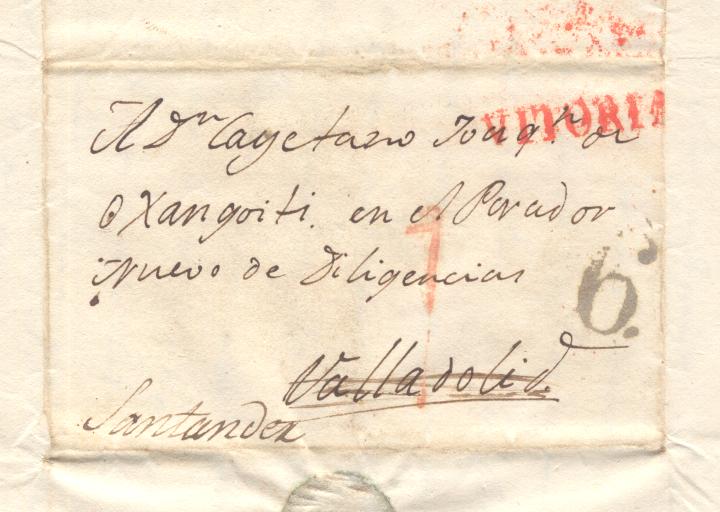 VITORIA
A Dn Cayetano Joaqn de
Oxangoiti. en el Parador
Nuevo de Diligencias
7
6.
Valladolid.
Santander